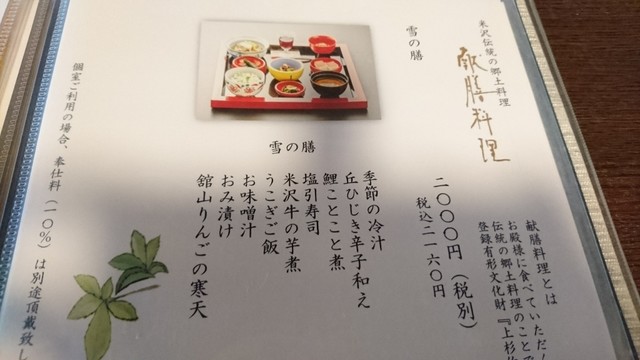 米沢伝統の郷土料理
献膳料理
献膳料理とは
お殿様に食べていただ
伝統の郷土料理のことで
登録有形文化財『上杉伯
雪の膳
二〇〇〇円（税別）
税込二一六〇円
雪の膳
季節の冷汁
丘ひじき辛子和え
鯉ことこと煮
塩引寿司
米沢牛の芋煮
うこぎご飯
お味噌汁
おみ漬け
舘山りんごの寒天
個室ご利用の場合、奉仕料（一〇％）は別途頂戴致し